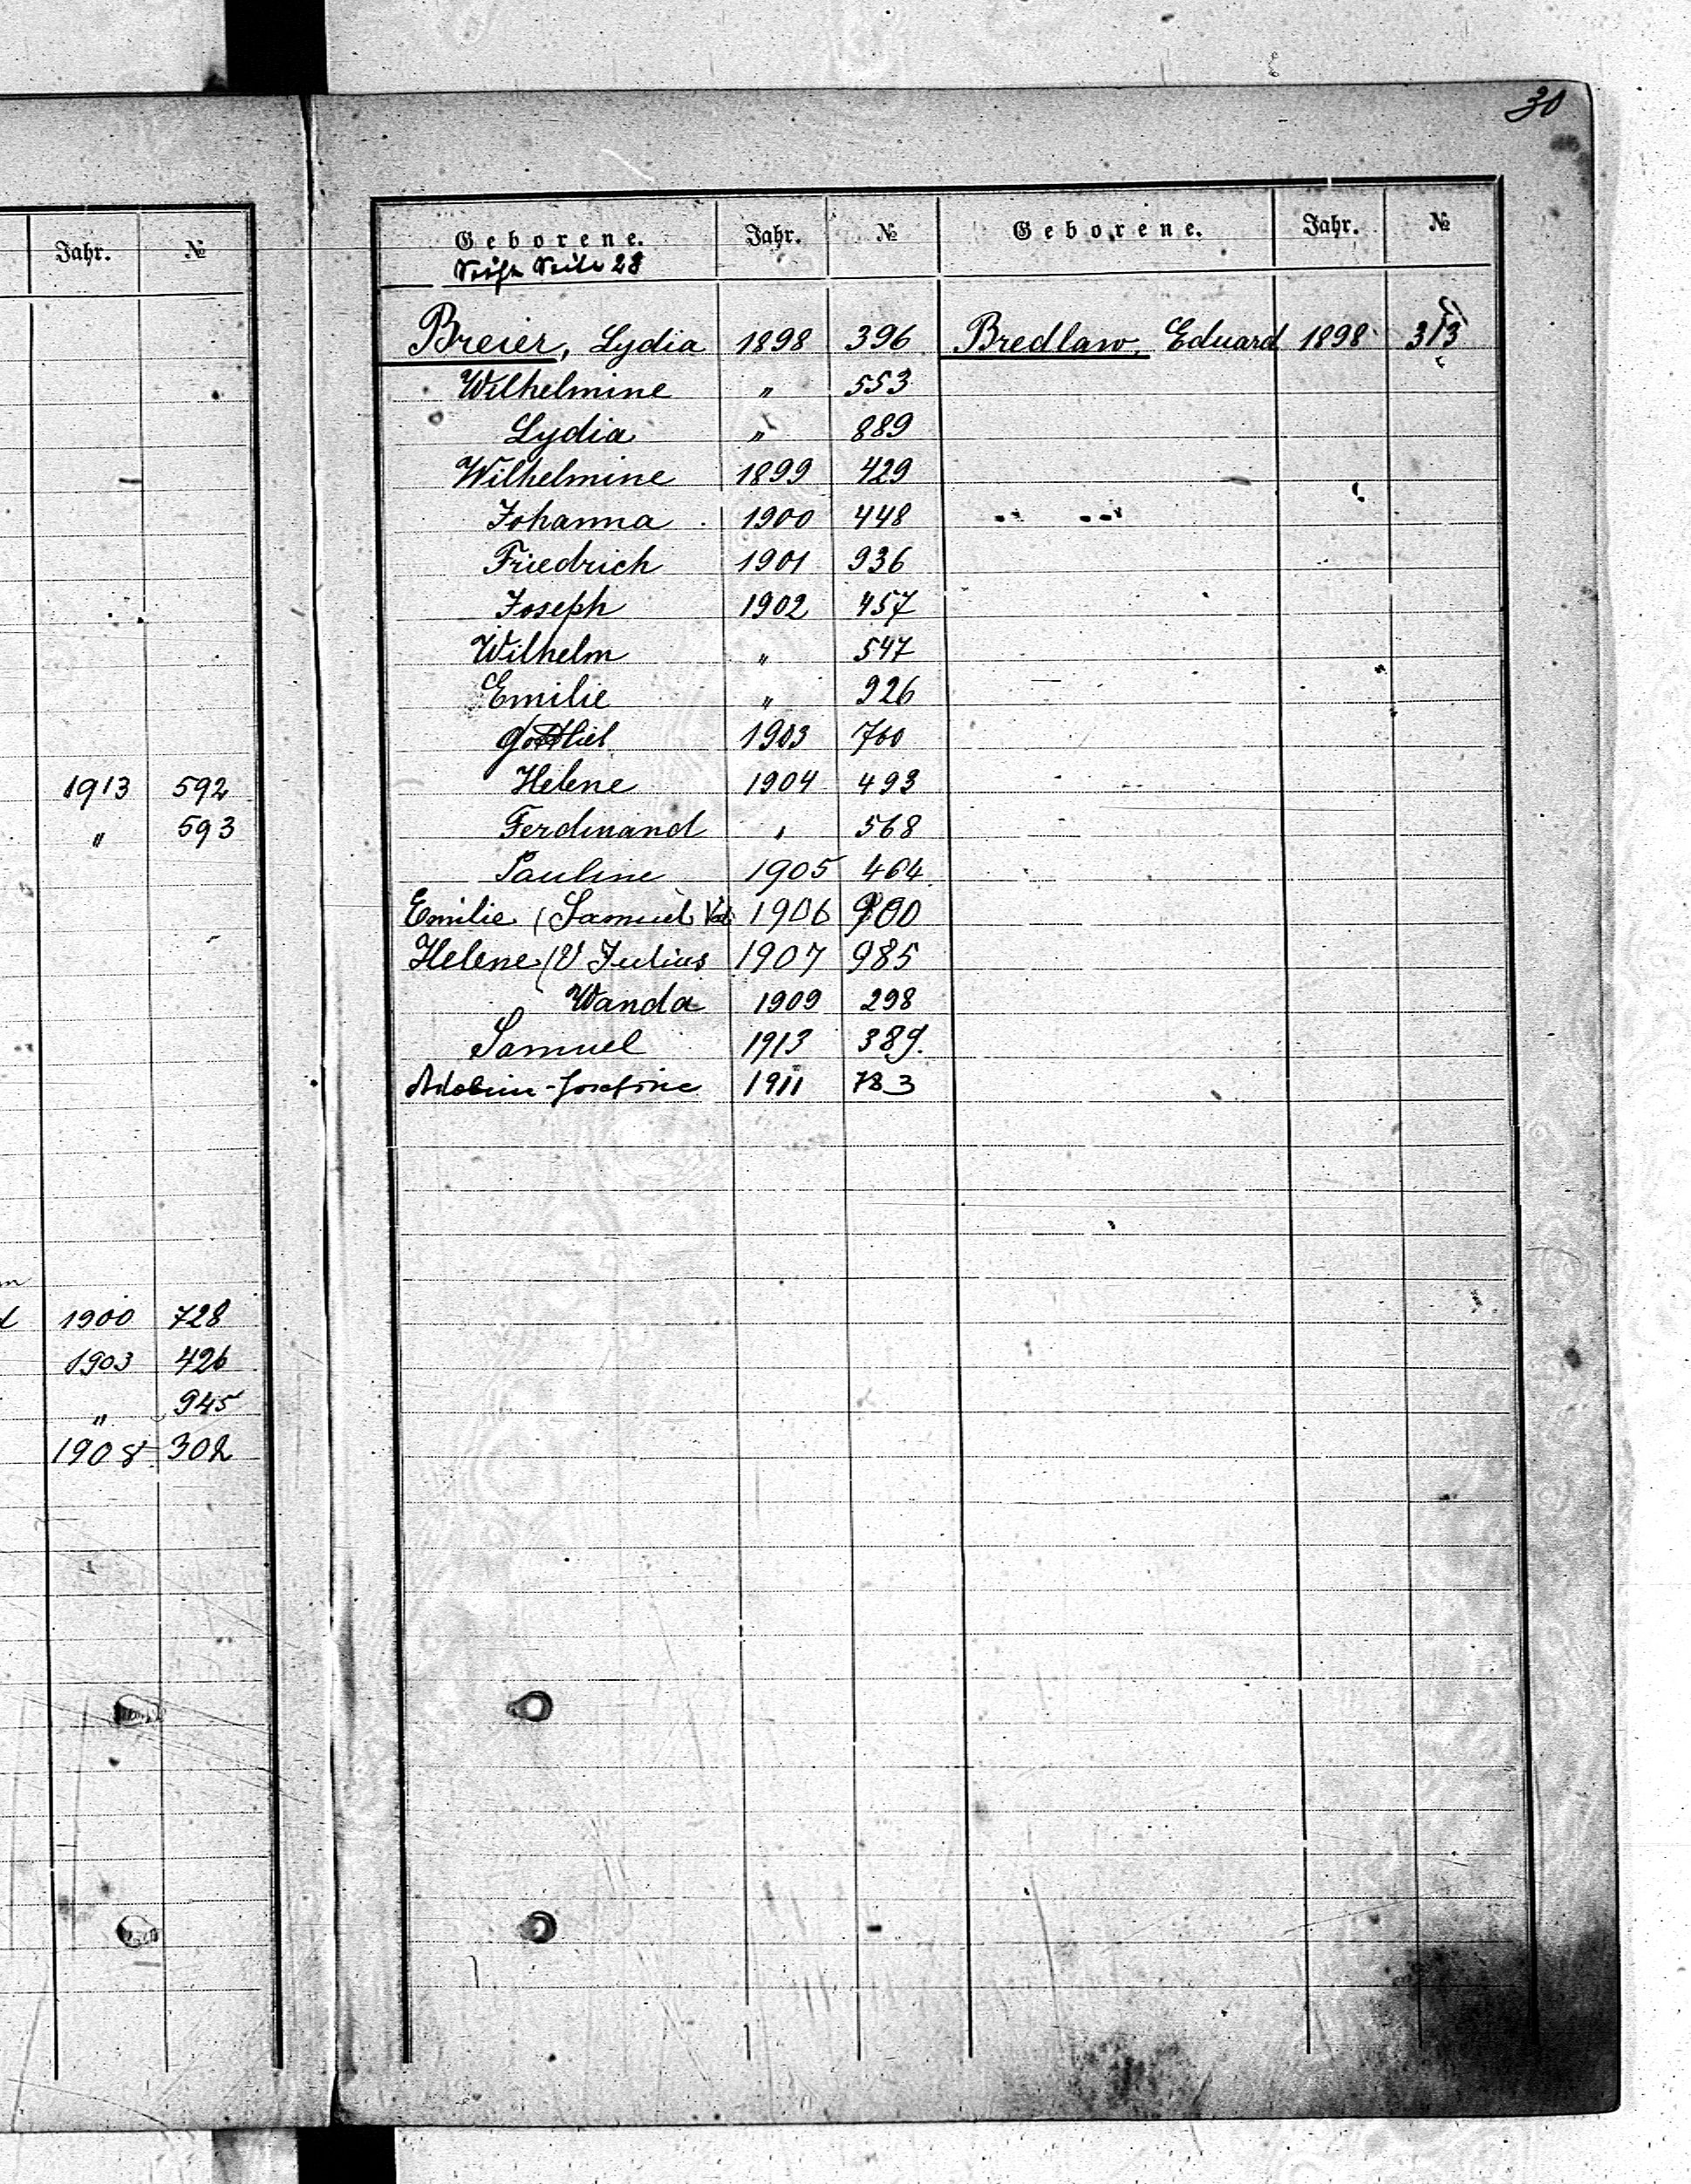 30
Jahr. №
1913 592
" 593
1900 728
1903 426
" 945
1908 302
Geborene. Jahr. № Geborene. Jahr. №
Seite 28
Breier, Lydia 1898 396 Bredlaw, Eduard 1898 313
Wilhelmine " 553
Lydia " 889
Wilhelmine 1899 429
Johanna 1900 448
Friedrich 1901 936
Joseph 1902 457
Wilhelm " 547
Emilie " 926
Gottlieb 1903 760
Helene 1904 493
Ferdinand " 568
Pauline 1905 464
Emilie (Samuel 1906 900
Helene (V Julius 1907 985
Wanda 1909 298
Samuel 1913 389.
1911 783